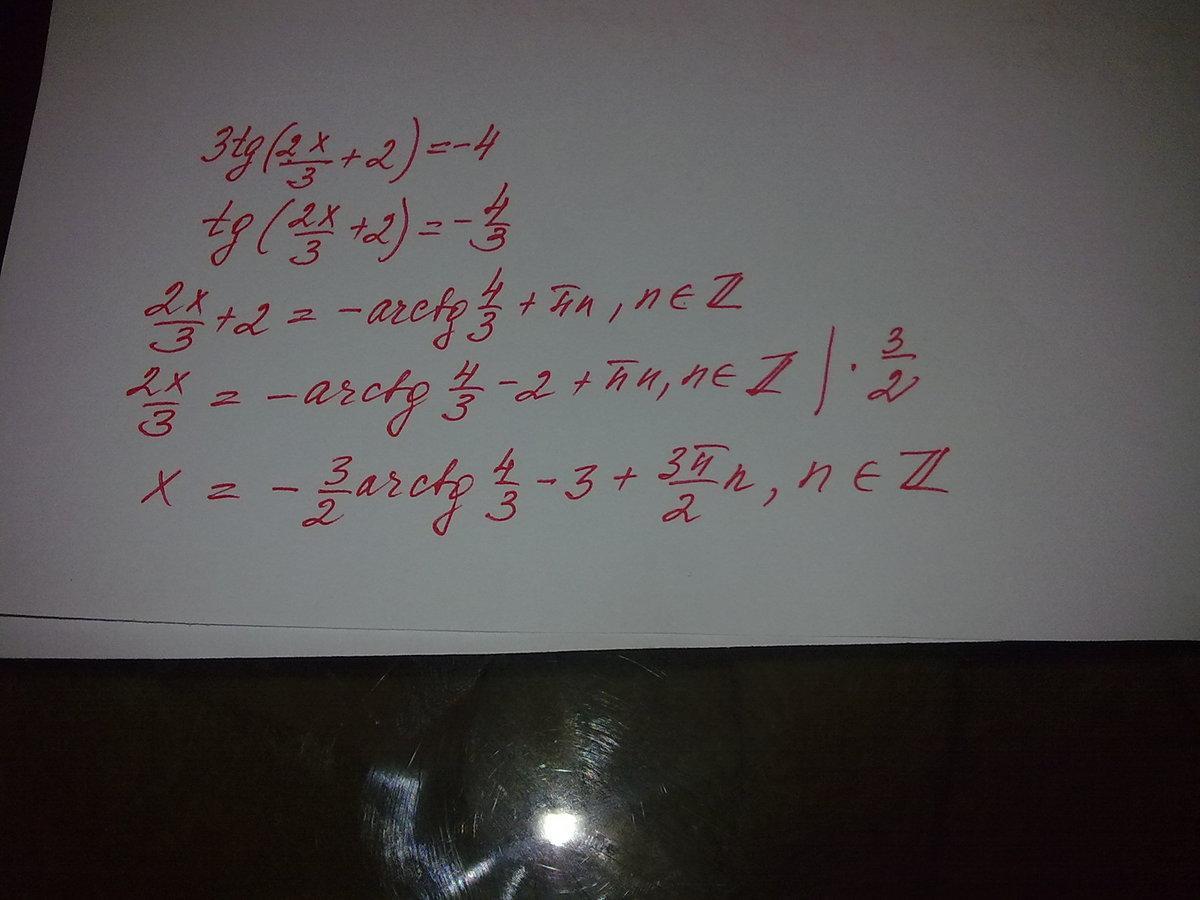 3tg(2x/3 + 2) = -4
tg(2x/3 + 2) = -4/3
2x/3 + 2 = -arctg 4/3 + πn, n ∈ ℤ
2x/3 = -arctg 4/3 - 2 + πn, n ∈ ℤ | · 3/2
x = -3/2 arctg 4/3 - 3 + 3π/2 n, n ∈ ℤ